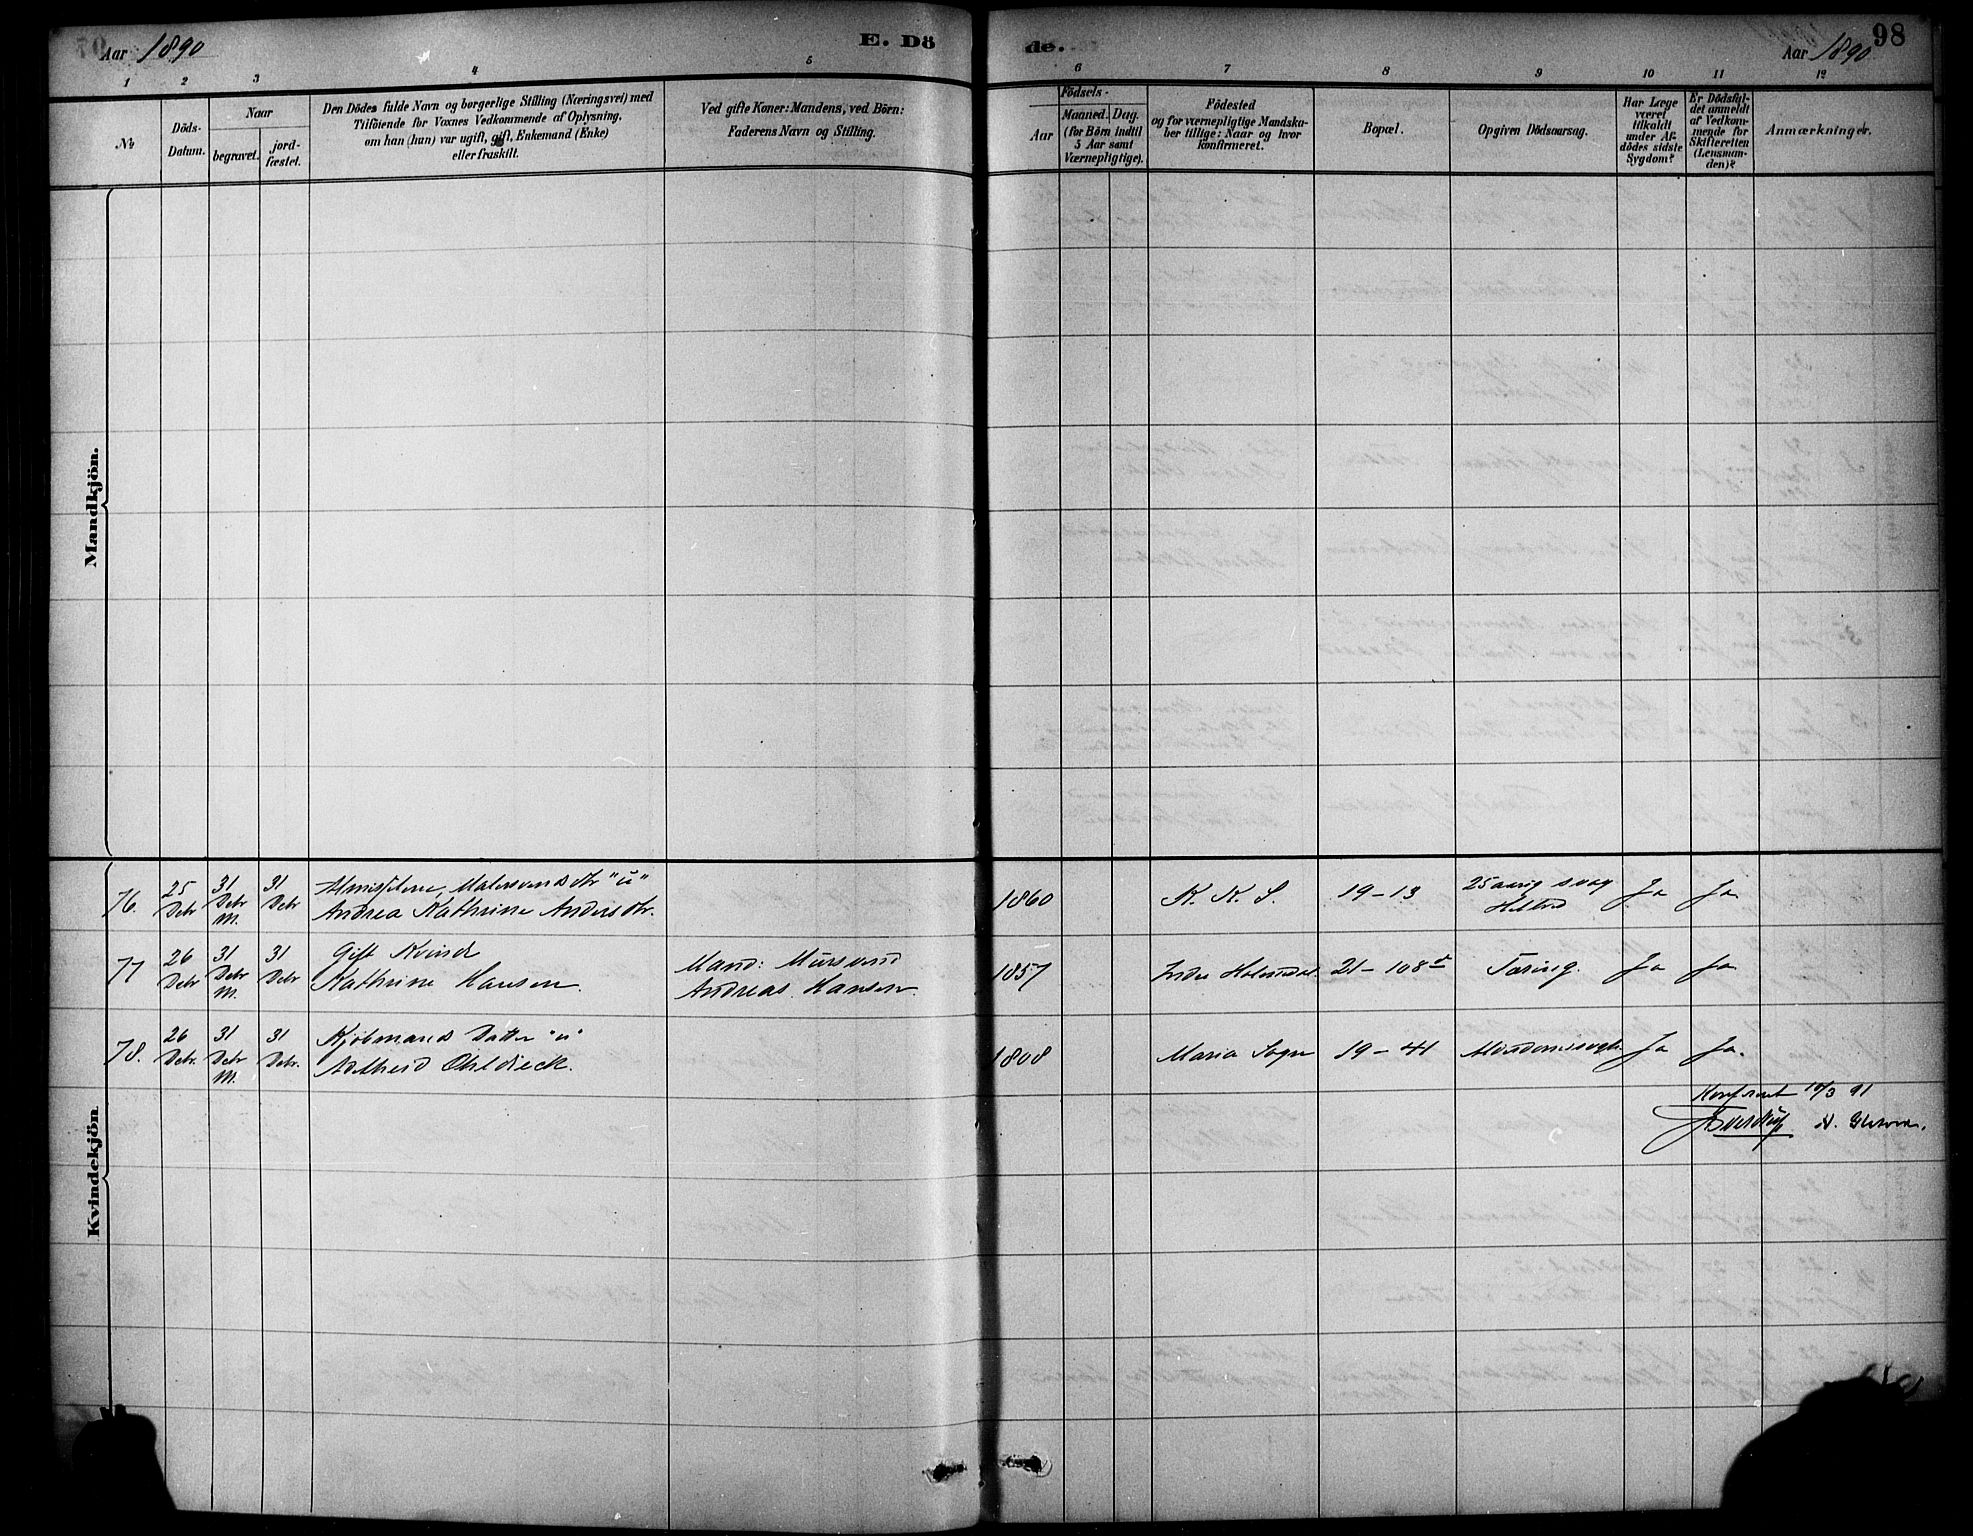 Aar 1890
E. Dö
de.
Aar 1890
98
1
2
3
4
5
6
7
8
9
10
11
12
No
Döds-
Datum.
Naar
begravet.
jord-
fæstet.
Den Dödes fulde Navn og borgerlige Stilling (Næringsvei) med
Tilföiende for Voxnes Vedkommende af Oplysning,
om han (hun) var ugift, gift, Enkemand (Enke)
eller fraskilt.
Ved gifte Koner: Mandens, ved Börn:
Faderens Navn og Stilling.
Födsels-
Aar
Maaned.
Dag.
(for Börn indtil
5 Aar samt
Værnepligtige).
Födested
og for værnepligtige Mandska-
ber tillige: Naar og hvor
konfirmeret.
Bopæl.
Opgiven Dödsaarsag.
Har Læge
været
tilkaldt
under Af-
dödes sidste
Sygdom?
Er Dödsfal-
det anmeldt
af Vedkom-
mende for
Skifteretten
(Lensman-
den)?
Anmærkninger.
Mandkjön.
Kvindekjön.
76.
25
Debr
31
Debr
M.
31
Debr
Malersvends dtr "u"
Andrea Kathrine Andersdtr.
1860
K. K. S.
19-13
25 aarig svag
Ja
Ja
77
26
Debr
31
Debr
M.
31
Debr
Gift Kvinde
Kathrine Hansen.
Mand: Mursvend
Andreas Hansen.
1857
Indre Holmedal
21-108
Tæring.
Ja
Ja
78.
26
Debr.
31
Debr
M.
31
Debr.
Kjöbmands Datter "u"
Adelheid Ohldieck.
1808
Maria Sogn
19-41
Ja
Ja.
Konfereret 10/3 91